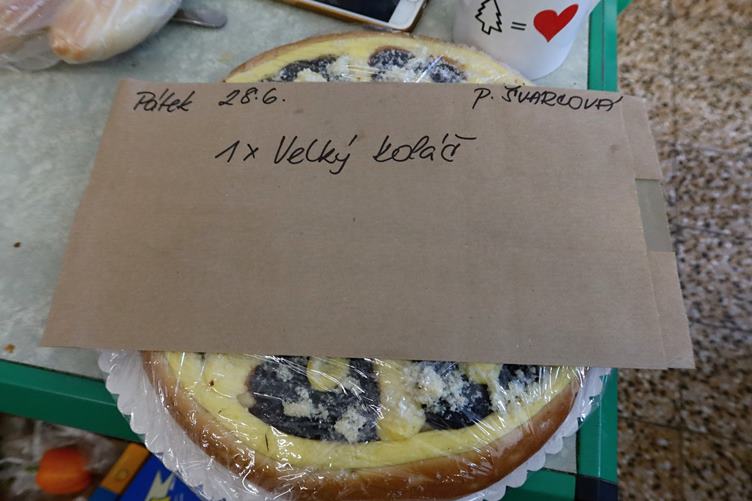 Pátek 28.6. P. ŠVARCOVÁ
1x Velký koláč
=